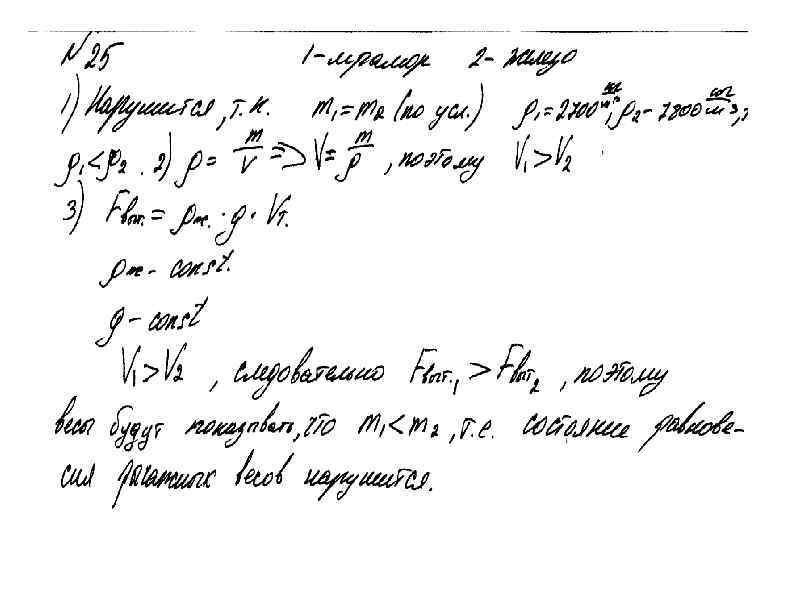 N25 1-мрамор 2-железо
1) Нарушится, т.к. m₁=m₂ (по усл.) ρ₁=2700 кг/м³, ρ₂-7800 кг/м³,
ρ₁<ρ₂. 2) ρ= m/V => V= m/ρ, поэтому V₁>V₂
3) Fвыт.= ρж. · g · Vт.
ρж - const.
g - const
V₁>V₂, следовательно Fвыт.₁ > Fвыт₂, поэтому
весы будут показывать, что m₁<m₂, т.е. состояние равнове-
сия рычажных весов нарушится.